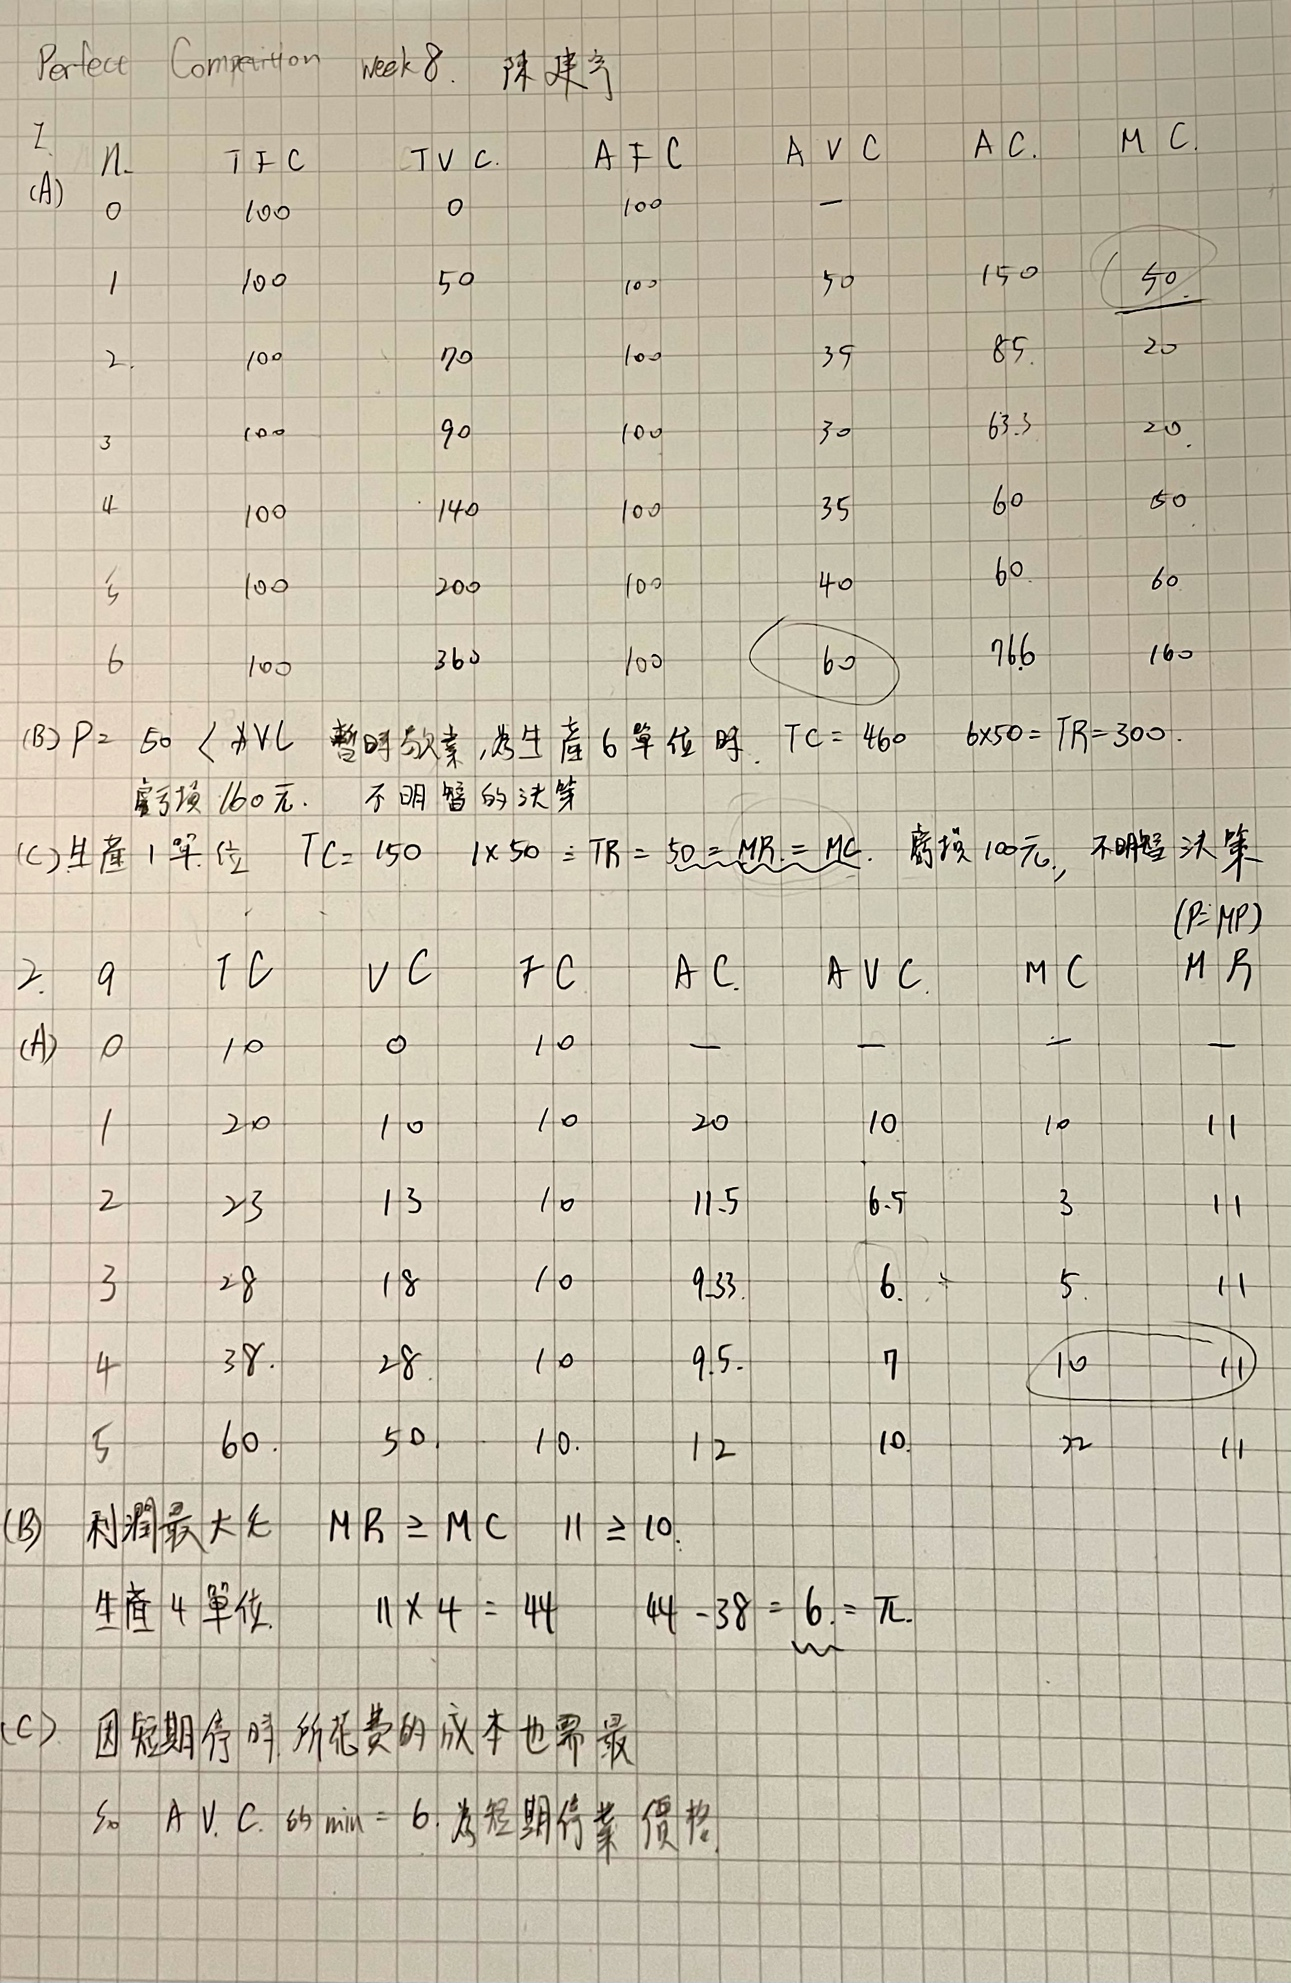 Perfect Competition week 8. 陳建亨
1. n. TFC TVC. AFC AVC AC. MC.
(A) 0 100 0 100 —
1 100 50 100 50 150 50.
2. 100 70 100 35 85. 20
3 100 90 100 30 63.3 20.
4 100 140 100 35 60 50
5 100 200 100 40 60. 60
6 100 360 100 60 76.6 160
(B) P= 50 < AVC 暫時歇業,為生產6單位時. TC=460 6x50=TR=300.
虧損160元. 不明智的決策
(C) 生產1單位 TC=150 1x50=TR=50=MR=MC. 虧損100元, 不明智決策
(P=MP)
2. q TC VC FC. AC. AVC. MC MR
(A) 0 10 0 10 — — — —
1 20 10 10 20 10 10 11
2 23 13 10 11.5 6.5 3 11
3 28 18 10 9.33. 6. 5. 11
4 38. 28. 10 9.5. 7 10 11
5 60. 50. 10. 12 10. 22 11
(B) 利潤最大化 MR ≥ MC 11 ≥ 10.
生產4單位. 11 x 4 = 44 44 - 38 = 6. = π.
(C). 因短期停時.所花費的成本也需最
So A.V.C. 的 min = 6.為短期停業價格.